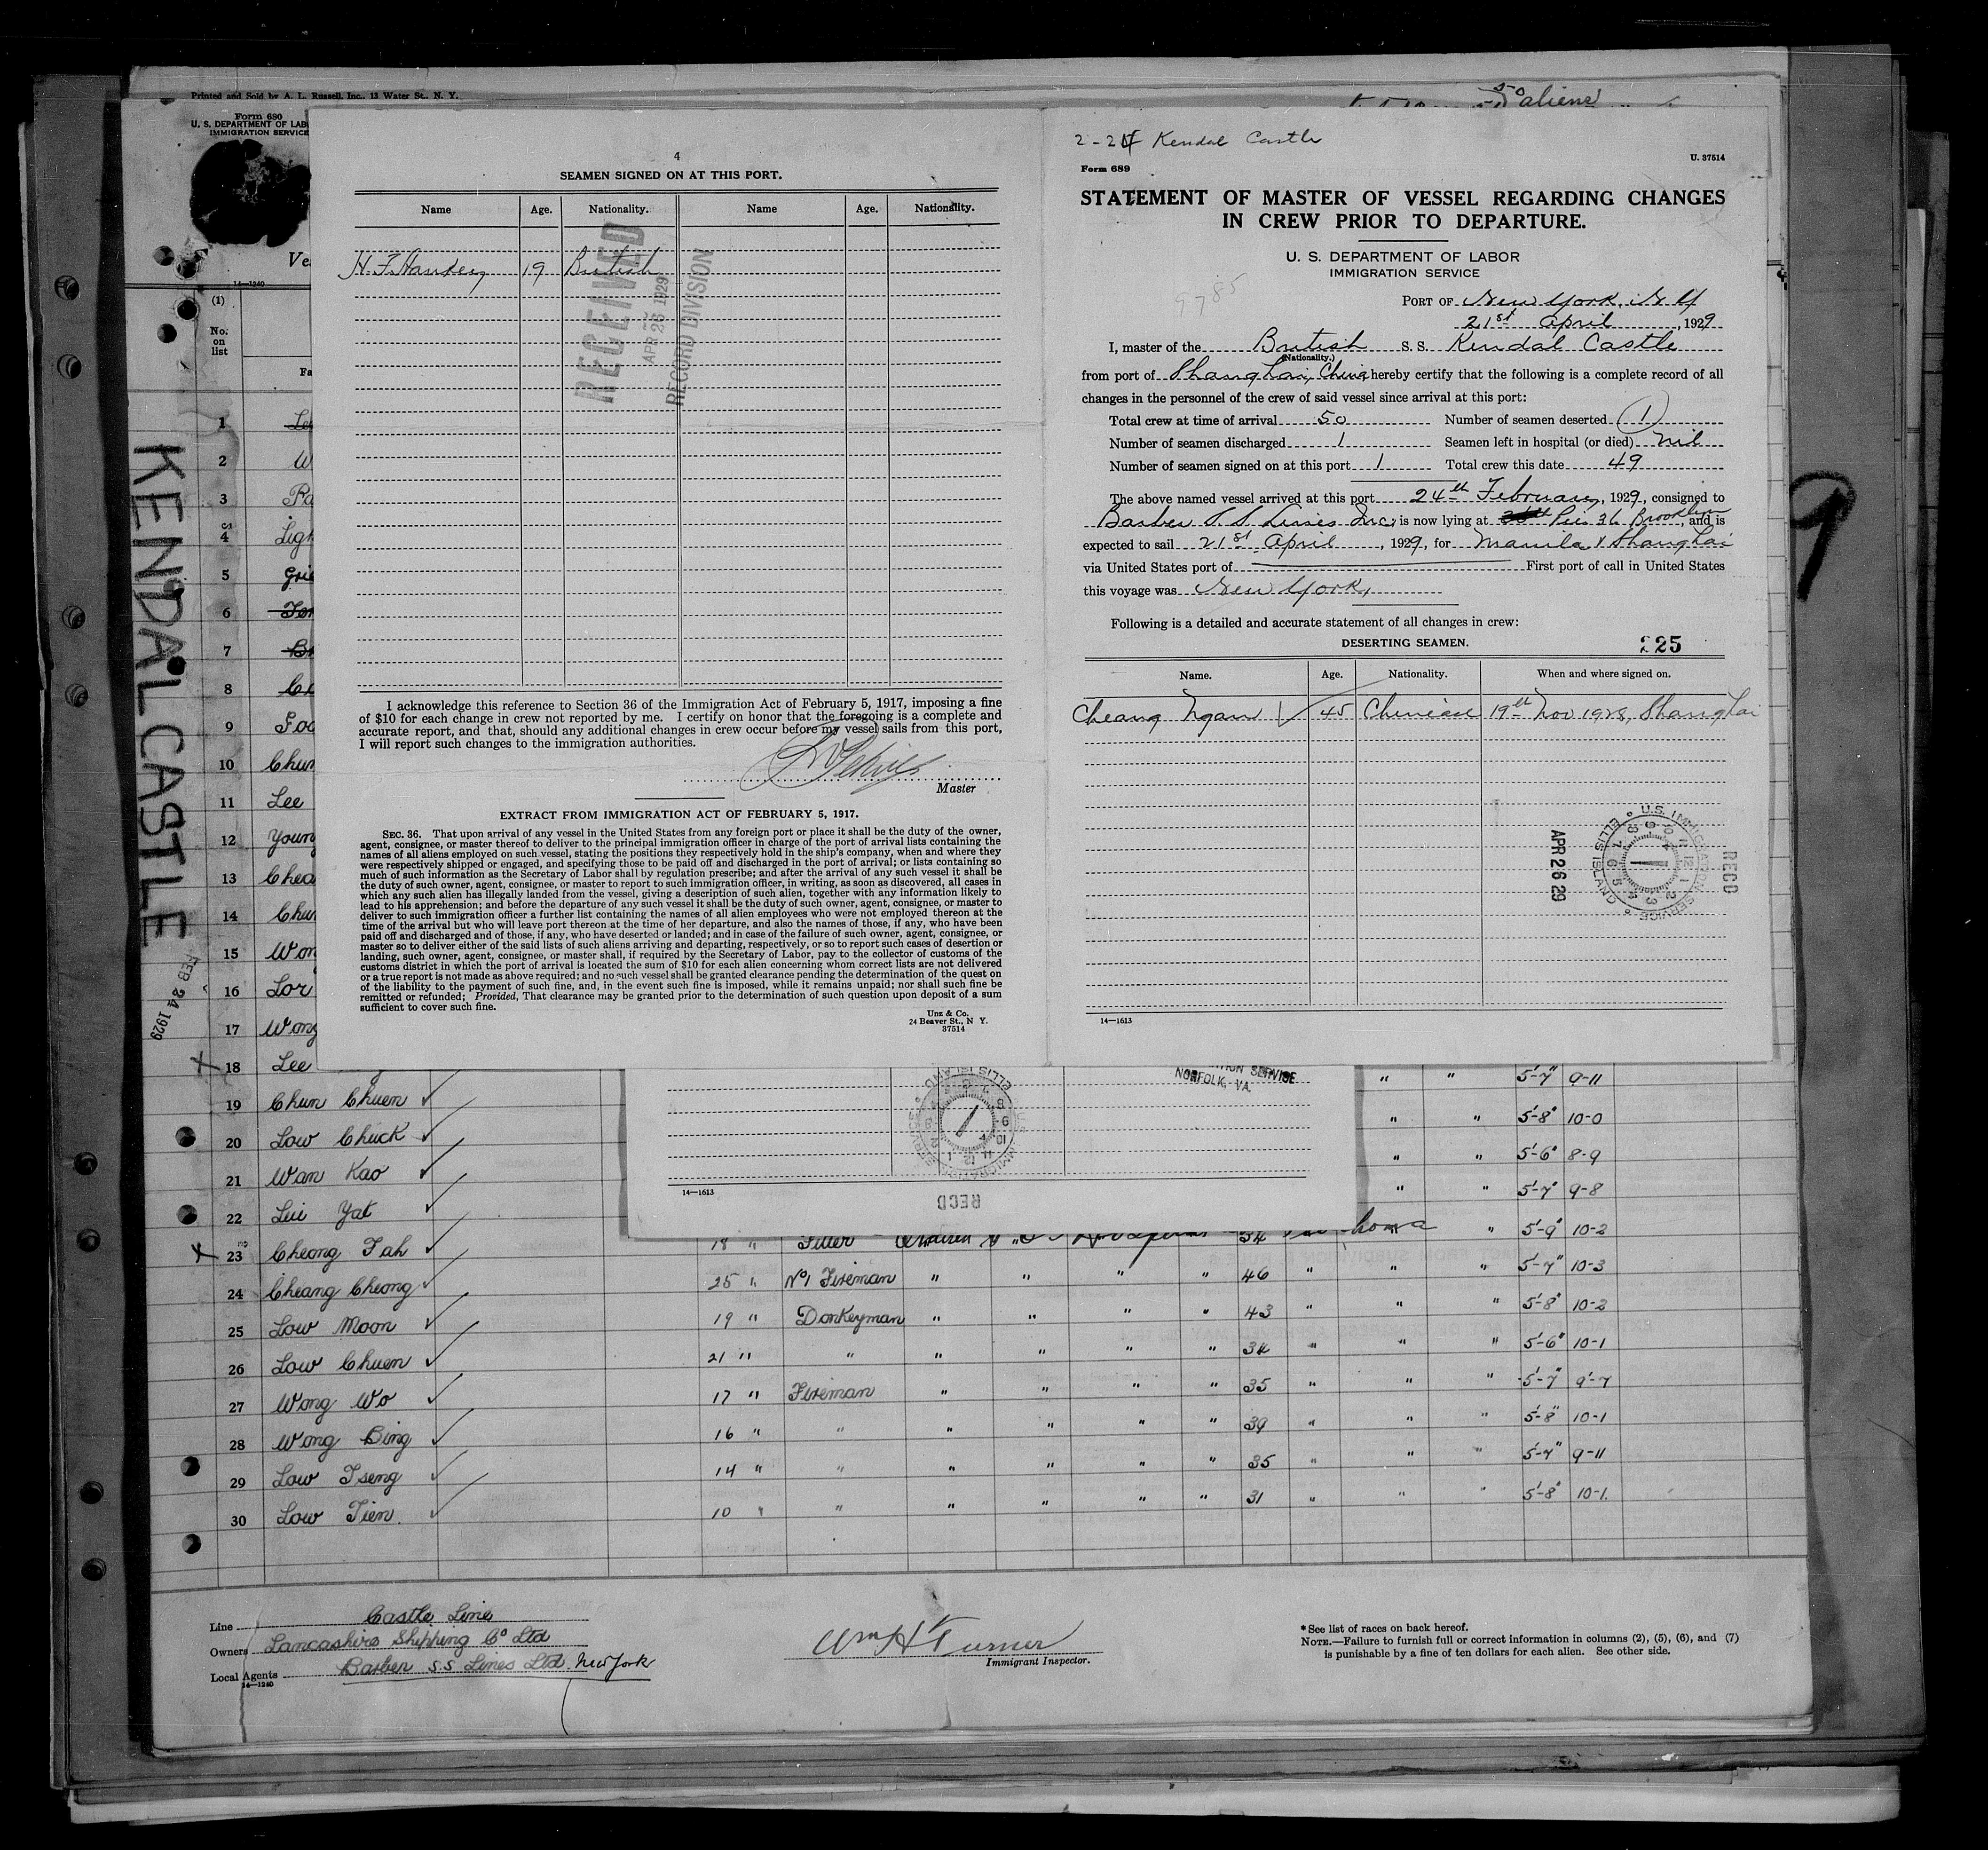 Printed and Sold by A. L. Russell, Inc., 13 Water St., N. Y.
aliens
Form 680
U. S. DEPARTMENT OF LAB
IMMIGRATION SERVICE
Ve
14—1240
(1)
No. on list
Fa
KENDAL CASTLE
FEB 24 1929
4
SEAMEN SIGNED ON AT THIS PORT.
Name Age. Nationality. Name Age. Nationality.
19 British
RECEIVED
APR 26 1929
RECORD DIVISION
I acknowledge this reference to Section 36 of the Immigration Act of February 5, 1917, imposing a fine
of $10 for each change in crew not reported by me. I certify on honor that the foregoing is a complete and
accurate report, and that, should any additional changes in crew occur before my vessel sails from this port,
I will report such changes to the immigration authorities.
Master
EXTRACT FROM IMMIGRATION ACT OF FEBRUARY 5, 1917.
SEC. 36. That upon arrival of any vessel in the United States from any foreign port or place it shall be the duty of the owner,
agent, consignee, or master thereof to deliver to the principal immigration officer in charge of the port of arrival lists containing the
names of all aliens employed on such vessel, stating the positions they respectively hold in the ship's company, when and where they
were respectively shipped or engaged, and specifying those to be paid off and discharged in the port of arrival; or lists containing so
much of such information as the Secretary of Labor shall by regulation prescribe; and after the arrival of any such vessel it shall be
the duty of such owner, agent, consignee, or master to report to such immigration officer, in writing, as soon as discovered, all cases in
which any such alien has illegally landed from the vessel, giving a description of such alien, together with any information likely to
lead to his apprehension; and before the departure of any such vessel it shall be the duty of such owner, agent, consignee, or master to
deliver to such immigration officer a further list containing the names of all alien employees who were not employed thereon at the
time of the arrival but who will leave port thereon at the time of her departure, and also the names of those, if any, who have been
paid off and discharged and of those, if any, who have deserted or landed; and in case of the failure of such owner, agent, consignee, or
master so to deliver either of the said lists of such aliens arriving and departing, respectively, or so to report such cases of desertion or
landing, such owner, agent, consignee, or master shall, if required by the Secretary of Labor, pay to the collector of customs of the
customs district in which the port of arrival is located the sum of $10 for each alien concerning whom correct lists are not delivered
or a true report is not made as above required; and no such vessel shall be granted clearance pending the determination of the quest on
of the liability to the payment of such fine, and, in the event such fine is imposed, while it remains unpaid; nor shall such fine be
remitted or refunded; Provided, That clearance may be granted prior to the determination of such question upon deposit of a sum
sufficient to cover such fine.
Unz & Co.
24 Beaver St., N Y.
37514
2-24 Kendal Castle
Form 689
U. 37514
STATEMENT OF MASTER OF VESSEL REGARDING CHANGES
IN CREW PRIOR TO DEPARTURE.
U. S. DEPARTMENT OF LABOR
IMMIGRATION SERVICE
9785
PORT OF New York, N Y
21st April, 1929
I, master of the British S. S. Kendal Castle
(Nationality.)
from port of Shanghai, China hereby certify that the following is a complete record of all
changes in the personnel of the crew of said vessel since arrival at this port:
Total crew at time of arrival 50 Number of seamen deserted 1
Number of seamen discharged 1 Seamen left in hospital (or died) nil
Number of seamen signed on at this port 1 Total crew this date 49
The above named vessel arrived at this port 24th February, 1929, consigned to
Barber S. S. Lines Inc; is now lying at Pier 36 Brooklyn, and is
expected to sail 21st April, 1929, for Manila & Shanghai
via United States port of First port of call in United States
this voyage was New York,
Following is a detailed and accurate statement of all changes in crew:
DESERTING SEAMEN. 225
Name. Age. Nationality. When and where signed on.
Cheang Ngan 45 Chinese 19th Nov 1928, Shanghai
U.S. IMMIGRATION SERVICE ELLIS ISLAND
APR 26 29
RECD
14—1613
1
2 W
3 Ra
4 Ligh
5 Grie
6
7
8
9 Foo
10 Chun
11 Lee
12 Young
13 Chea
14 Chun
15 Won
16 Lor
17 Wong
18 Lee " " 5'-7" 9-11
19 Chun Chuen " " 5'-8" 10-0
20 Low Chuck " " 5'-6" 8-9
21 Wan Kao " " 5'-7" 9-8
22 Lui Yat " 5'-9" 10-2
23 Cheong Fah 18 " Fitter 34 " 5'-7" 10-3
24 Cheang Cheong 25 " No 1 Fireman " " " " 46 " " " 5'-8" 10-2
25 Low Moon 19 " Donkeyman " " " " 43 " " " 5'-6" 10-1
26 Low Chuen 21 " " " " " " 34 " " " 5'-7" 9-7
27 Wong Wo 17 " Fireman " " " " 35 " " " 5'-8" 10-1
28 Wong Bing 16 " " " " " " 39 " " " 5'-7" 9-11
29 Low Tseng 14 " " " " " " 35 " " " 5'-8" 10-1.
30 Low Tien 10 " " " " " " 31 "
NORFOLK, VA.
U.S. IMMIGRATION SERVICE ELLIS ISLAND
14—1613
RECD
Line Castle Line
Owners Lancashire Shipping Co Ltd
Local Agents Barber S.S Lines Ltd. New York
14—1240
Wm H Turner
Immigrant Inspector.
* See list of races on back hereof.
NOTE.—Failure to furnish full or correct information in columns (2), (5), (6), and (7)
is punishable by a fine of ten dollars for each alien. See other side.